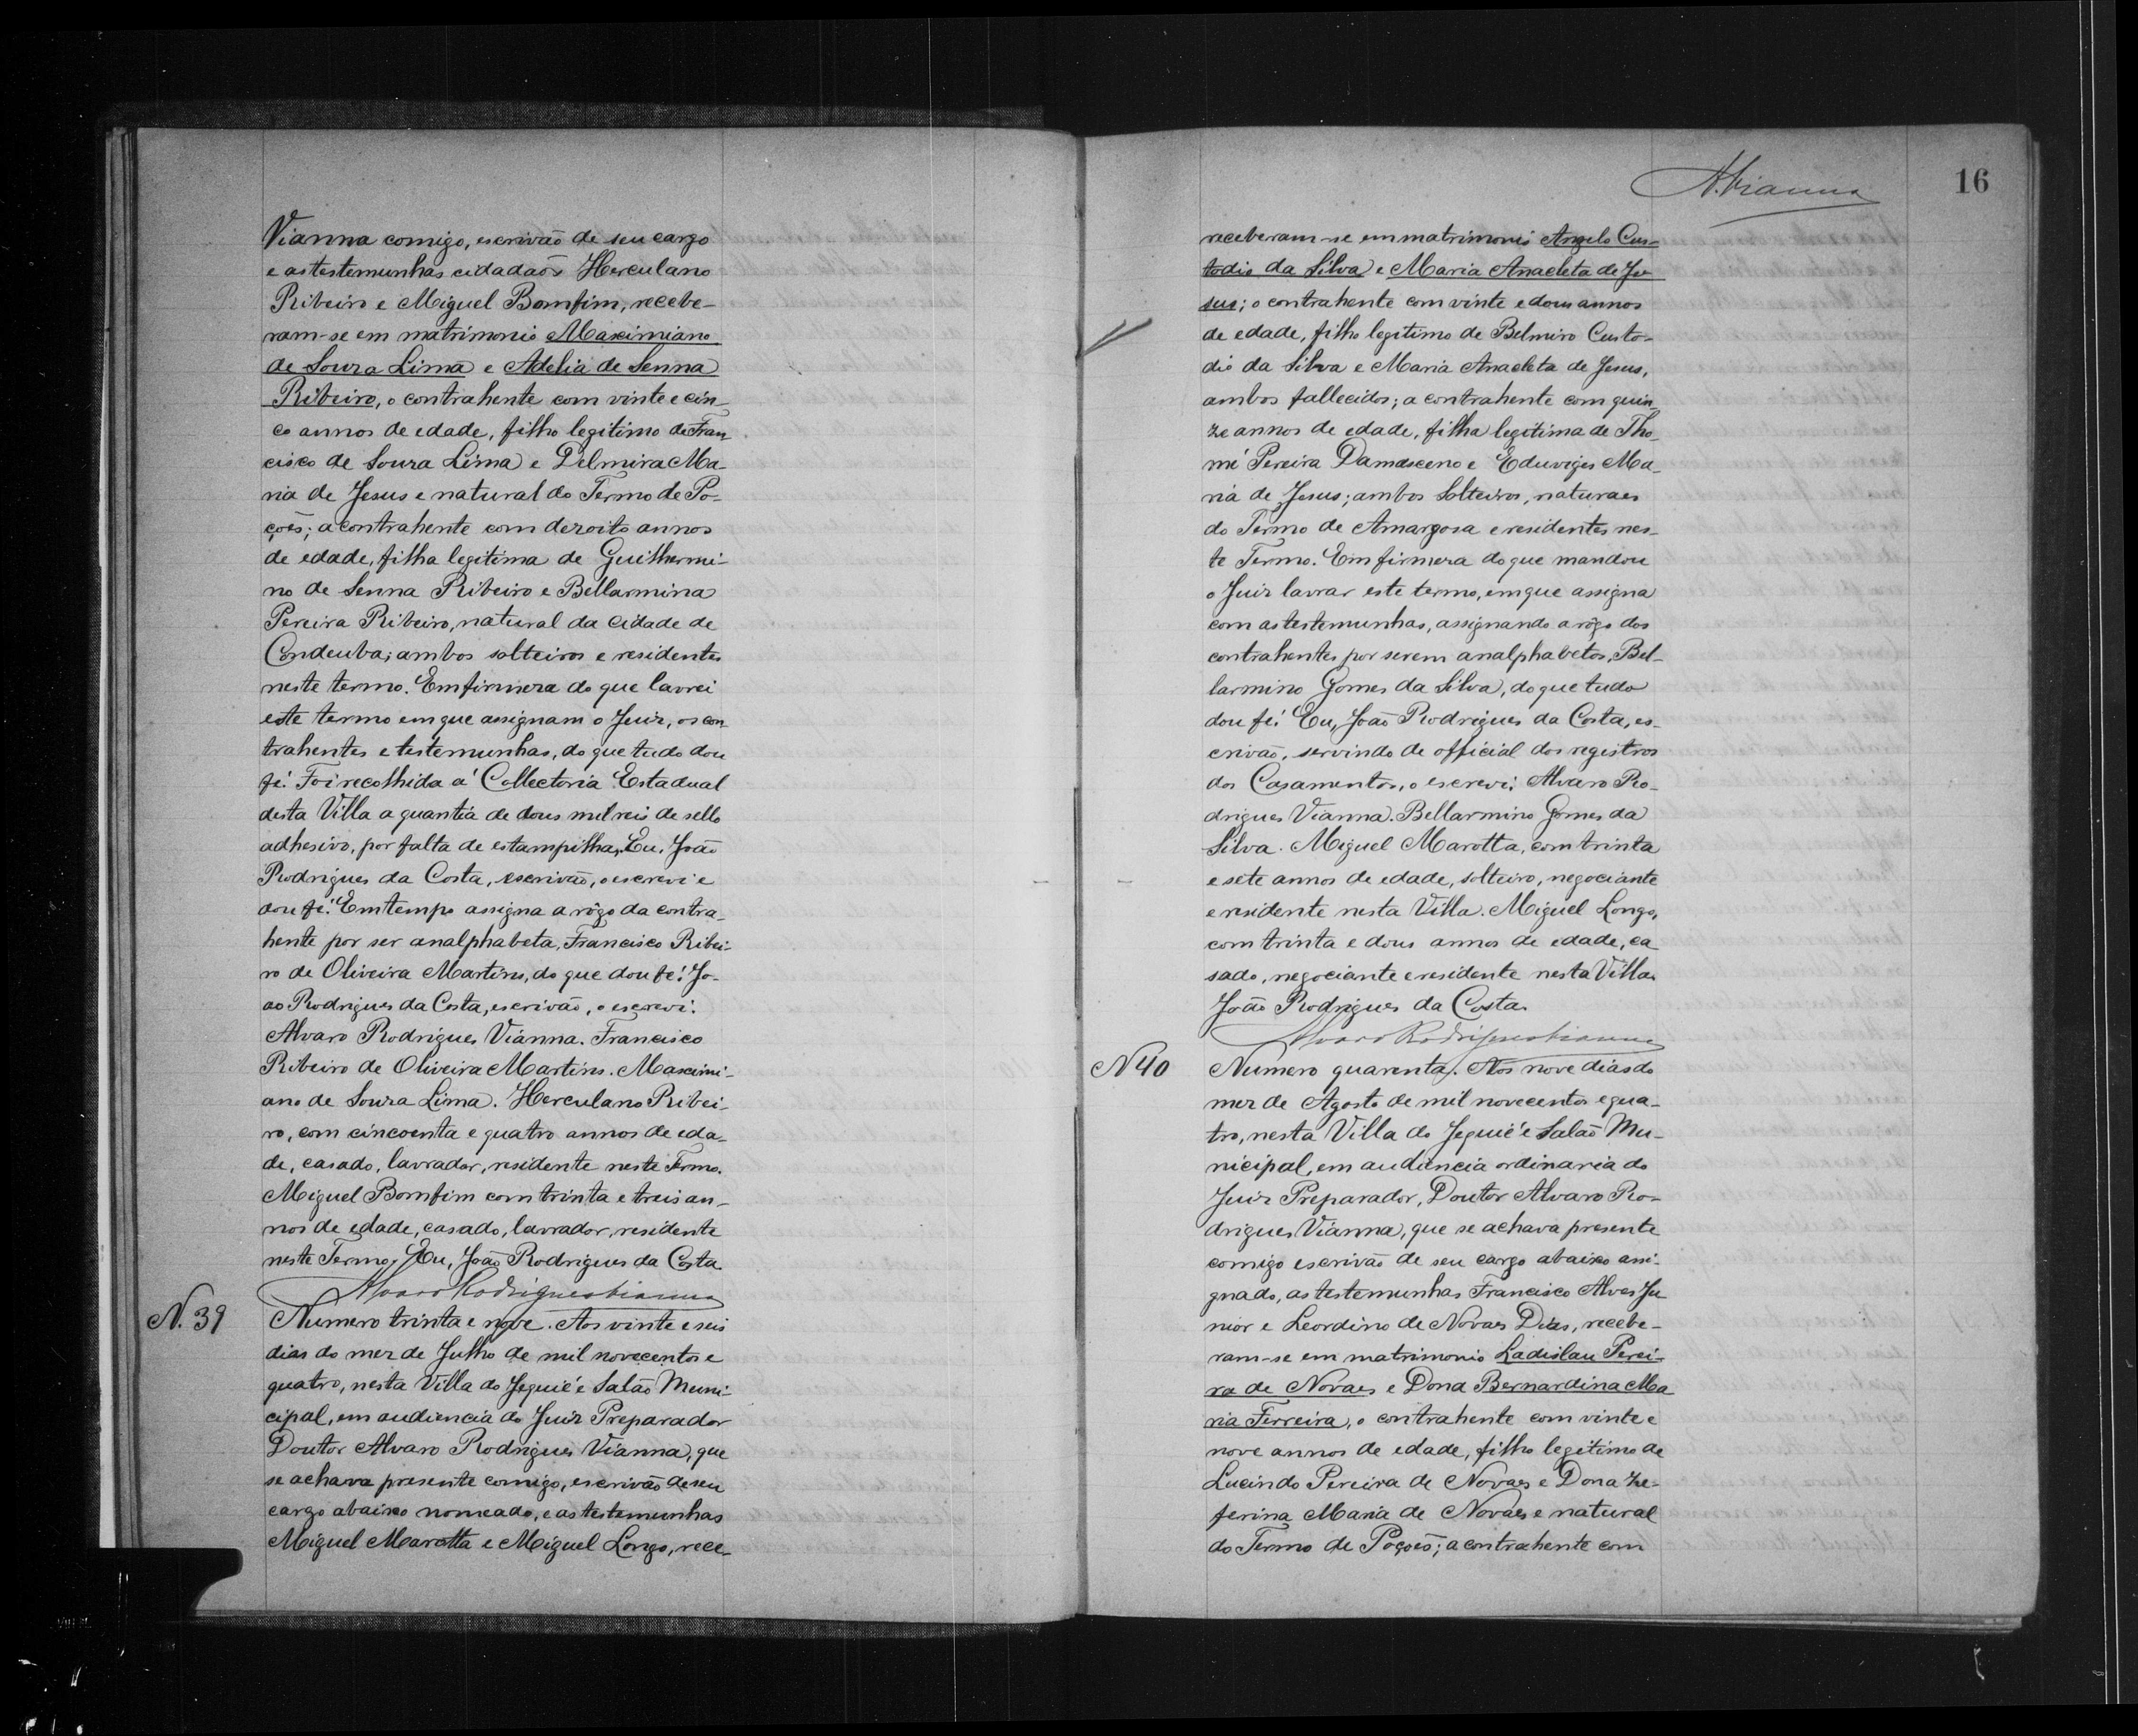 Vianna comigo, escrivão de seu cargo
e as testemunhas cidadaõs Herculano
Ribeiro e Miguel Bomfim, recebe-
ram-se em matrimonio Maximiano
de Souza Lima e Adelia de Senna
Ribeiro, o contrahente com vinte e cin-
co annos de edade, filho legitimo de Fran
cisco de Souza Lima e Delmira Ma-
ria de Jesus e natural do Termo de Po-
çoẽs; a contrahente com dezoito annos
de edade, filha legitima de Guilhermi-
no de Senna Ribeiro e Bellarmina
Pereira Ribeiro, natural da cidade de
Condeuba; ambos solteiros e residentes
neste termo. Em firmeza do que lavrei
este termo em que assignam o Juiz, os con
trahentes e testemunhas, do que tudo dou
fé. Foi recolhida a' Collectoria Estadual
desta Villa a quantia de dous mil reis de sello
adhesivo, por falta de estampilhas. Eu, João
Rodrigues da Costa, escrivão, o escrevi e
dou fé. Em tempo assigna a rôgo da contra-
hente por ser analphabeta, Francisco Ribei-
ro de Oliveira Martins, do que dou fé. Jo-
ao Rodrigues da Costa, escrivão, o escrevi.
Alvaro Rodrigues Vianna. Francisco
Ribeiro de Oliveira Martins. Maximi-
ano de Souza Lima. Herculano Ribei-
ro, com cincoenta e quatro annos de eda-
de, casado, lavrador, residente neste Termo.
Miguel Bomfim com trinta e treis an-
nos de edade, casado, lavrador, residente
neste Termo. Eu, João Rodrigues da Costa.
Alvaro Rodrigues Vianna
N. 39
Numero trinta e nove. Aos vinte e seis
dias do mez de Julho de mil novecentos e
quatro, nesta Villa do Jequié e Salão Muni-
cipal, em audiencia do Juiz Preparador
Doutor Alvaro Rodrigues Vianna, que
se achava presente comigo, escrivão de seu
cargo abaixo nomeado, e as testemunhas
Miguel Marotta e Miguel Longo, rece-
A. Vianna
16
receberam-se em matrimonio Angelo Cus-
todio da Silva e Maria Anacleta de Je
sus; o contrahente com vinte e dous annos
de edade, filho legitimo de Belmiro Custo-
dio da Silva e Maria Anacleta de Jesus,
ambos fallecidos; a contrahente com quin-
ze annos de edade, filha legitima de Tho-
mé Pereira Damasceno e Eduviges Ma-
ria de Jesus; ambos solteiros, naturaes
do Termo de Amargosa e residentes nes-
te Termo. Em firmeza do que mandou
o Juiz lavrar este termo, em que assigna
com as testemunhas, assignando a rôgo dos
contrahentes por serem analphabetos, Bel-
larmino Gomes da Silva, do que tudo
dou fé. Eu, João Rodrigues da Costa, es-
crivão, servindo de official dos registros
dos Casamentos, o escrevi. Alvaro Ro-
drigues Vianna. Bellarmino Gomes da
Silva. Miguel Marotta, com trinta
e sete annos de edade, solteiro, negociante
e residente nesta Villa. Miguel Longo,
com trinta e dous annos de edade, ca
sado, negociante e residente nesta Villa.
João Rodrigues da Costa.
Alvaro Rodrigues Vianna
N 40
Numero quarenta. Aos nove dias do
mez de Agosto de mil novecentos e qua-
tro, nesta Villa do Jequié e Salão Mu-
nicipal, em audiencia ordinaria do
Juiz Preparador, Doutor Alvaro Ro-
drigues Vianna, que se achava presente
comigo escrivão de seu cargo abaixo assi-
gnado, as testemunhas Francisco Alves Ju
nior e Leordino de Novaes Dias, recebe-
ram-se em matrimonio Ladislau Perei-
ra de Novaes e Dona Bernardina Ma
ria Ferreira, o contrahente com vinte e
nove annos de edade, filho legitimo de
Lucindo Pereira de Novaes e Dona Ze-
ferina Maria de Novaes e natural
do Termo de Poçoẽs; a contrahente com